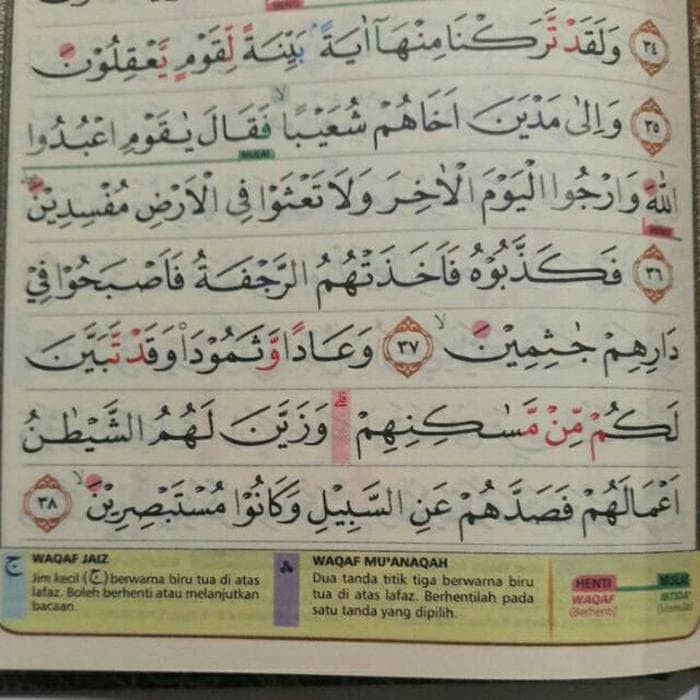 HENTI
٣٤ وَلَقَدْ تَّرَكْنَا مِنْهَآ اٰيَةً ۢ بَيِّنَةً لِّقَوْمٍ يَّعْقِلُوْنَ
٣٥ وَاِلٰى مَدْيَنَ اَخَاهُمْ شُعَيْبًاۙ فَقَالَ يٰقَوْمِ اعْبُدُوا
MULAI
اللّٰهَ وَارْجُوا الْيَوْمَ الْاٰخِرَ وَلَا تَعْثَوْا فِى الْاَرْضِ مُفْسِدِيْنَۙ
٣٦ فَكَذَّبُوْهُ فَاَخَذَتْهُمُ الرَّجْفَةُ فَاَصْبَحُوْا فِيْ
دَارِهِمْ جٰثِمِيْنَۙ ٣٧ وَعَادًا وَّثَمُوْدَا۟ وَقَدْ تَّبَيَّنَ
لَكُمْ مِّنْ مَّسٰكِنِهِمْۗ وَزَيَّنَ لَهُمُ الشَّيْطٰنُ
اَعْمَالَهُمْ فَصَدَّهُمْ عَنِ السَّبِيْلِ وَكَانُوْا مُسْتَبْصِرِيْنَۙ ٣٨
ج WAQAF JAIZ
Jim kecil (ج) berwarna biru tua di atas
lafaz. Boleh berhenti atau melanjutkan
bacaan.
WAQAF MU'ANAQAH
Dua tanda titik tiga berwarna biru
tua di atas lafaz. Berhentilah pada
satu tanda yang dipilih.
HENTI MULAI
WAQAF IBTIDA'
(Berhenti)